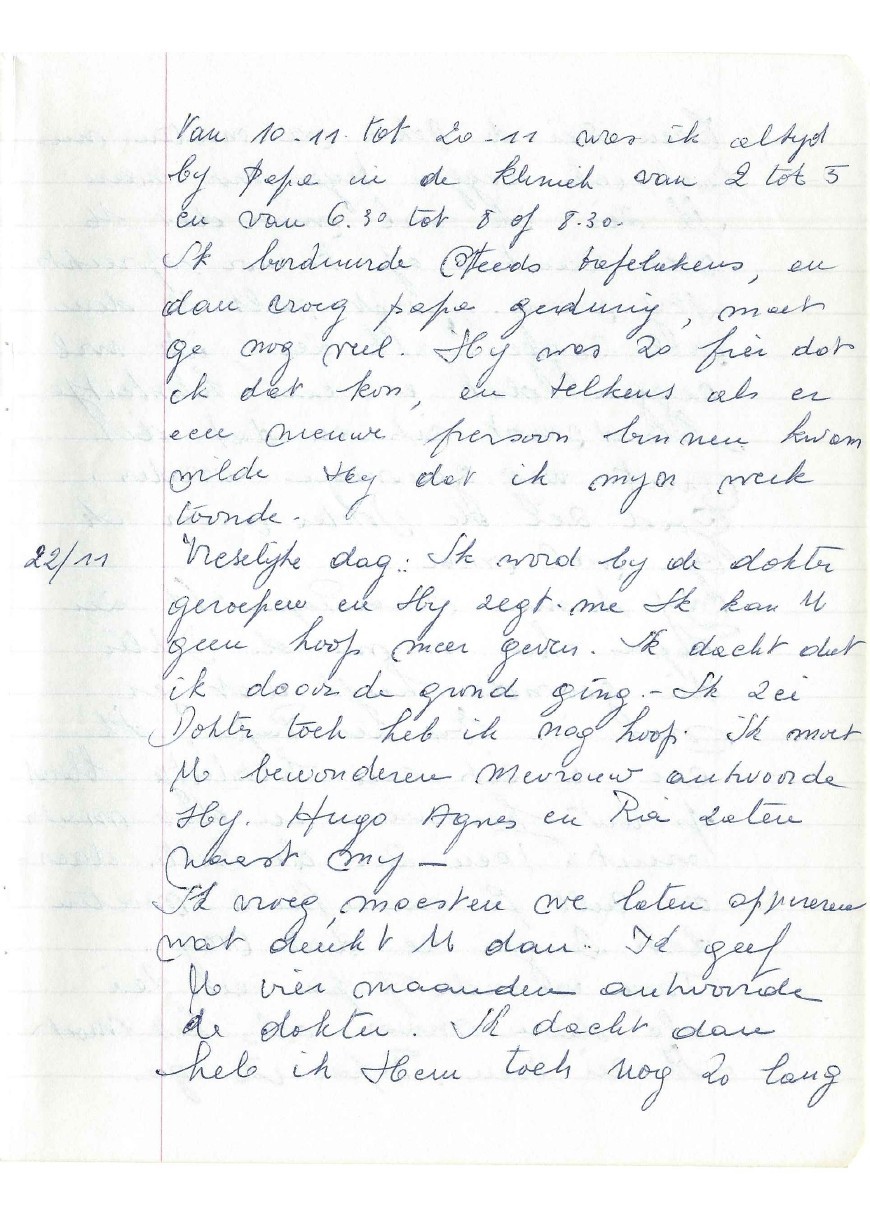 Van 10-11 tot 20-11 was ik altyd
by Papa in de kliniek van 2 tot 5
en van 6.30 tot 8 of 8.30
Ik borduurde steeds tafellakens, en
dan vroeg papa gedurig, moet
ge nog veel. Hy was zo fier dat
ik dat kon, en telkens als er
een nieuwe persoon binnen kwam
wilde Hy dat ik myn werk
toonde.
22/11 Vreselyke dag: Ik word by de dokter
geroepen en Hy zegt me Ik kan U
geen hoop meer geven. Ik dacht dat
ik door de grond ging. - Ik zei
Dokter toch heb ik nog hoop. Ik moet
U bewonderen Mevrouw antwoorde
Hy. Hugo Agnes en Ria zaten
naast my -
Ik vroeg, moesten we laten oppereren
wat denkt U dan. Ik geef
U vier maanden antwoorde
de dokter. Ik dacht dan
heb ik Hem toch nog zo lang